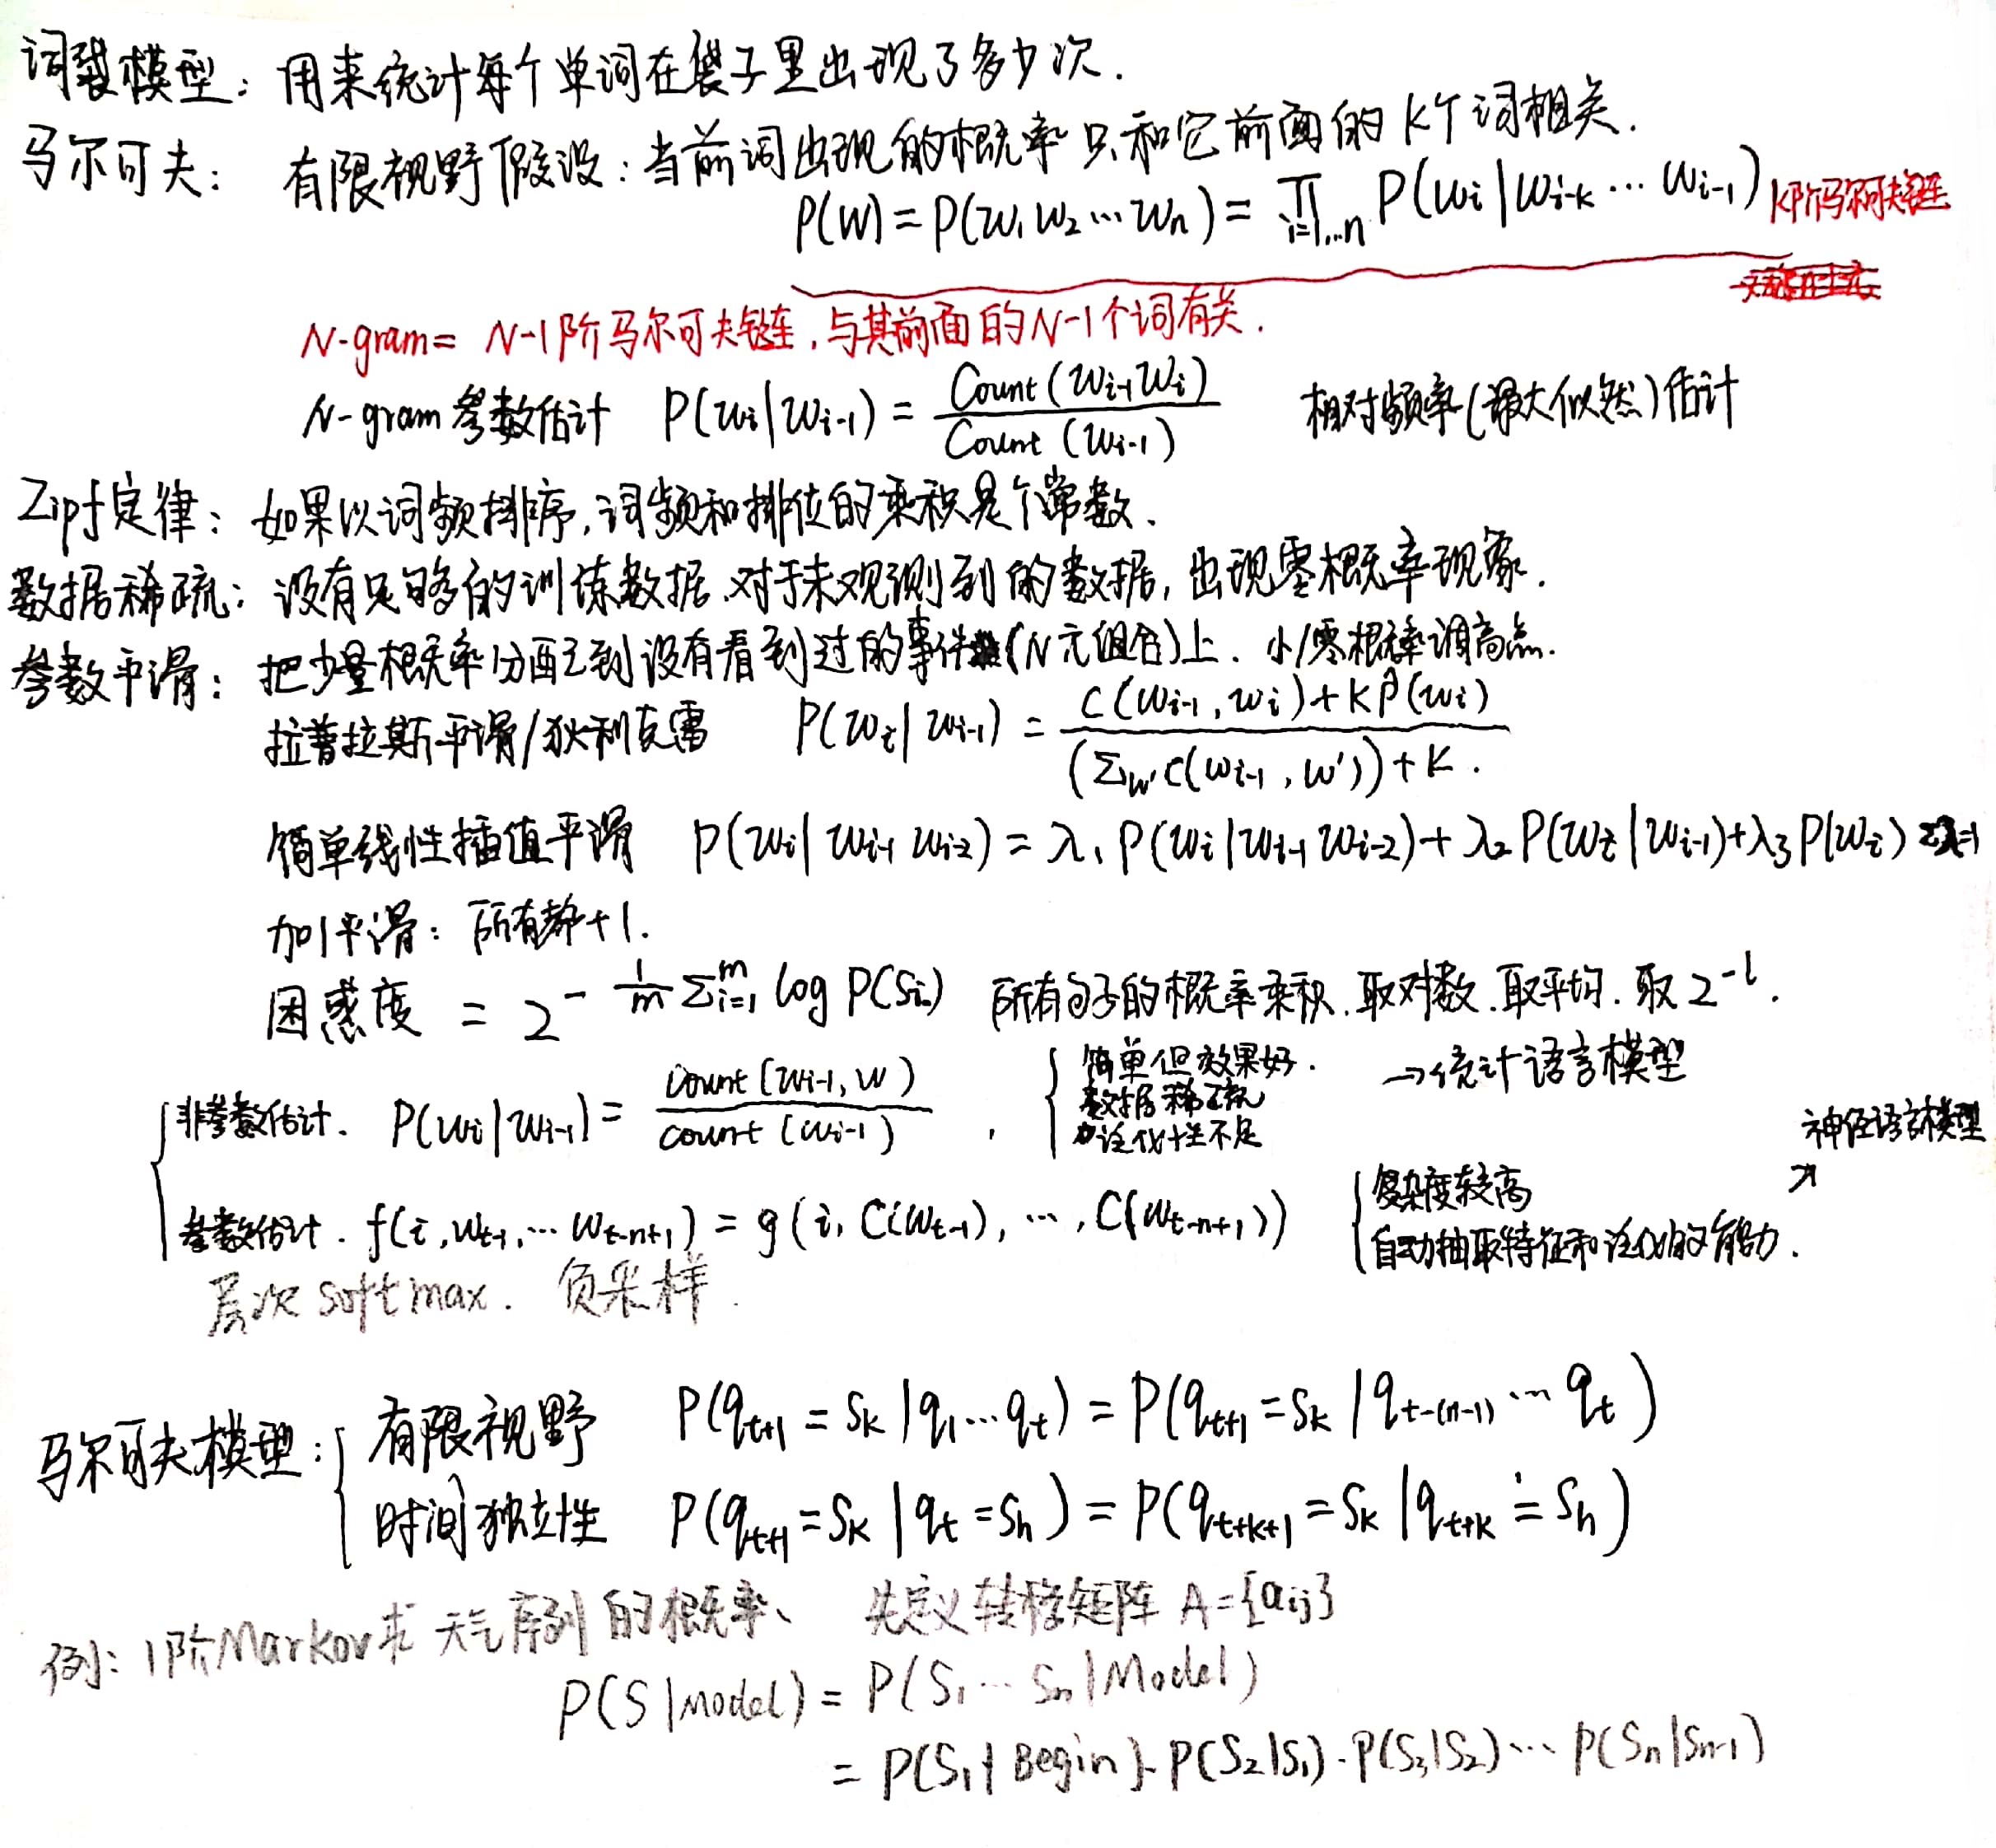 词袋模型：用来统计每个单词在袋子里出现了多少次.
马尔可夫： 有限视野假设：当前词出现的概率只和它前面的 K个词相关.
P(W) = P(w₁w₂…wₙ) = ∏_{i=1,…n} P(wᵢ|w_{i-k}…w_{i-1}) K阶马尔可夫链
N-gram = N-1阶马尔可夫链，与其前面的N-1个词有关.
N-gram 参数估计 P(wᵢ|w_{i-1}) = Count(w_{i-1}wᵢ) / Count(w_{i-1}) 相对频率(最大似然)估计
Zipf定律：如果以词频排序，词频和排位的乘积是个常数.
数据稀疏：没有足够多的训练数据，对于未观测到的数据，出现零概率现象.
参数平滑：把少量概率分配到没有看到过的事件(N元组合)上. 小/零概率调高点.
拉普拉斯平滑/狄利克雷 P(wᵢ|w_{i-1}) = (C(w_{i-1}, wᵢ) + K P̂(wᵢ)) / ((Σ_{w'} C(w_{i-1}, w')) + K.
简单线性插值平滑 P(wᵢ|w_{i-1} w_{i-2}) = λ₁P(wᵢ|w_{i-1} w_{i-2}) + λ₂P(wᵢ|w_{i-1}) + λ₃P(wᵢ) Σλ=1
加1平滑：所有都+1.
困惑度 = 2^{-1/m Σ_{i=1}^{m} log P(Sᵢ)} 所有句子的概率乘积. 取对数. 取平均. 取2^{-l}.
非参数估计. P(wᵢ|w_{i-1}) = count(w_{i-1}, w) / count(w_{i-1}) ,
简单但效果好. →统计语言模型
数据稀疏
泛化性不足
神经语言模型
↗
参数估计. f(i, w_{t-1}, … w_{t-n+1}) = g(i, C(w_{t-1}), …, C(w_{t-n+1}))
复杂度较高
自动抽取特征和泛化的能力.
层次 softmax. 负采样.
马尔可夫模型：
有限视野 P(q_{t+1} = S_k | q₁…q_t) = P(q_{t+1} = S_k | q_{t-(n-1)} … q_t)
时间独立性 P(q_{t+1} = S_k | q_t = S_h) = P(q_{t+k+1} = S_k | q_{t+k} = S_h)
例：1阶Markov求天气序列的概率、 先定义转移矩阵 A={a_{ij}}
P(S|model) = P(S₁…Sₙ|Model)
= P(S₁|Begin)·P(S₂|S₁)·P(S₃|S₂)…P(Sₙ|S_{n-1})